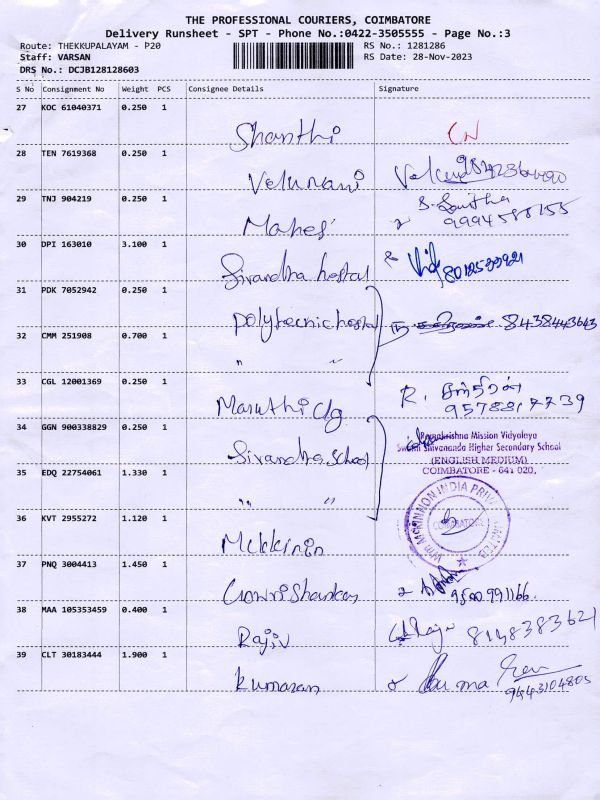 THE PROFESSIONAL COURIERS, COIMBATORE
Delivery Runsheet - SPT - Phone No.:0422-3505555 - Page No.:3
Route: THEKKUPALAYAM - P20 RS No.: 1281286
Staff: VARSAN RS Date: 28-Nov-2023
DRS No.: DCJB128128603
S No Consignment No Weight PCS Consignee Details Signature
27 KOC 61040371 0.250 1
Shanthi CN
28 TEN 7619368 0.250 1
Velumani
29 TNJ 904219 0.250 1
Mahes S. Savitha
9994588155
30 DPI 163010 3.100 1
Sivandha hostal 8012539921
31 PDK 7052942 0.250 1
Polytecnic hostal 8438443643
32 CMM 251908 0.700 1
" "
33 CGL 12001369 0.250 1
Maruthi Clg R.
9578817739
34 GGN 900338829 0.250 1
Sivandha School
Ramakrishna Mission Vidyalaya
Swami Shivananda Higher Secondary School
(ENGLISH MEDIUM)
COIMBATORE - 641 020.
35 EDQ 22754061 1.330 1
" "
36 KVT 2955272 1.120 1
Mckkinin
COIMBATORE
37 PNQ 3004413 1.450 1
Gowrishankar 9500991166.
38 MAA 105353459 0.400 1
Rajiv 8148383621
39 CLT 30183444 1.900 1
kumaran 9443104805